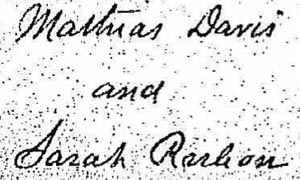 Mathias Davis
and
Sarah